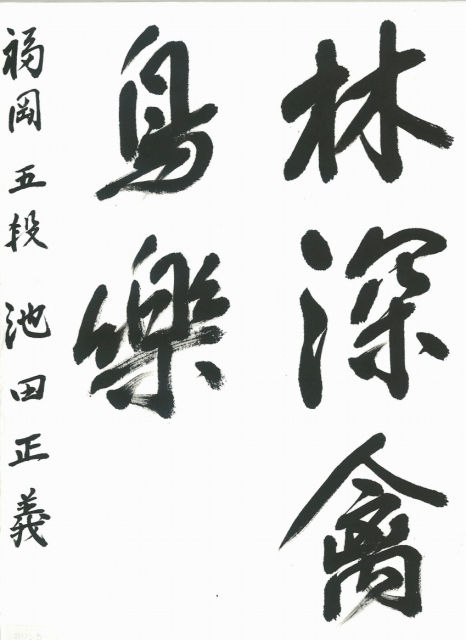 林深禽
鳥樂
福岡 五段 池田正義